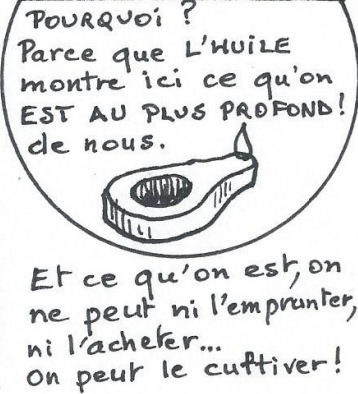 POURQUOi ?
Parce que L'HUILE
montre ici ce qu'on
EST AU PLUS PROFOND!
de nous.
Et ce qu'on est, on
ne peut ni l'emprunter,
ni l'acheter...
on peut le cultiver!